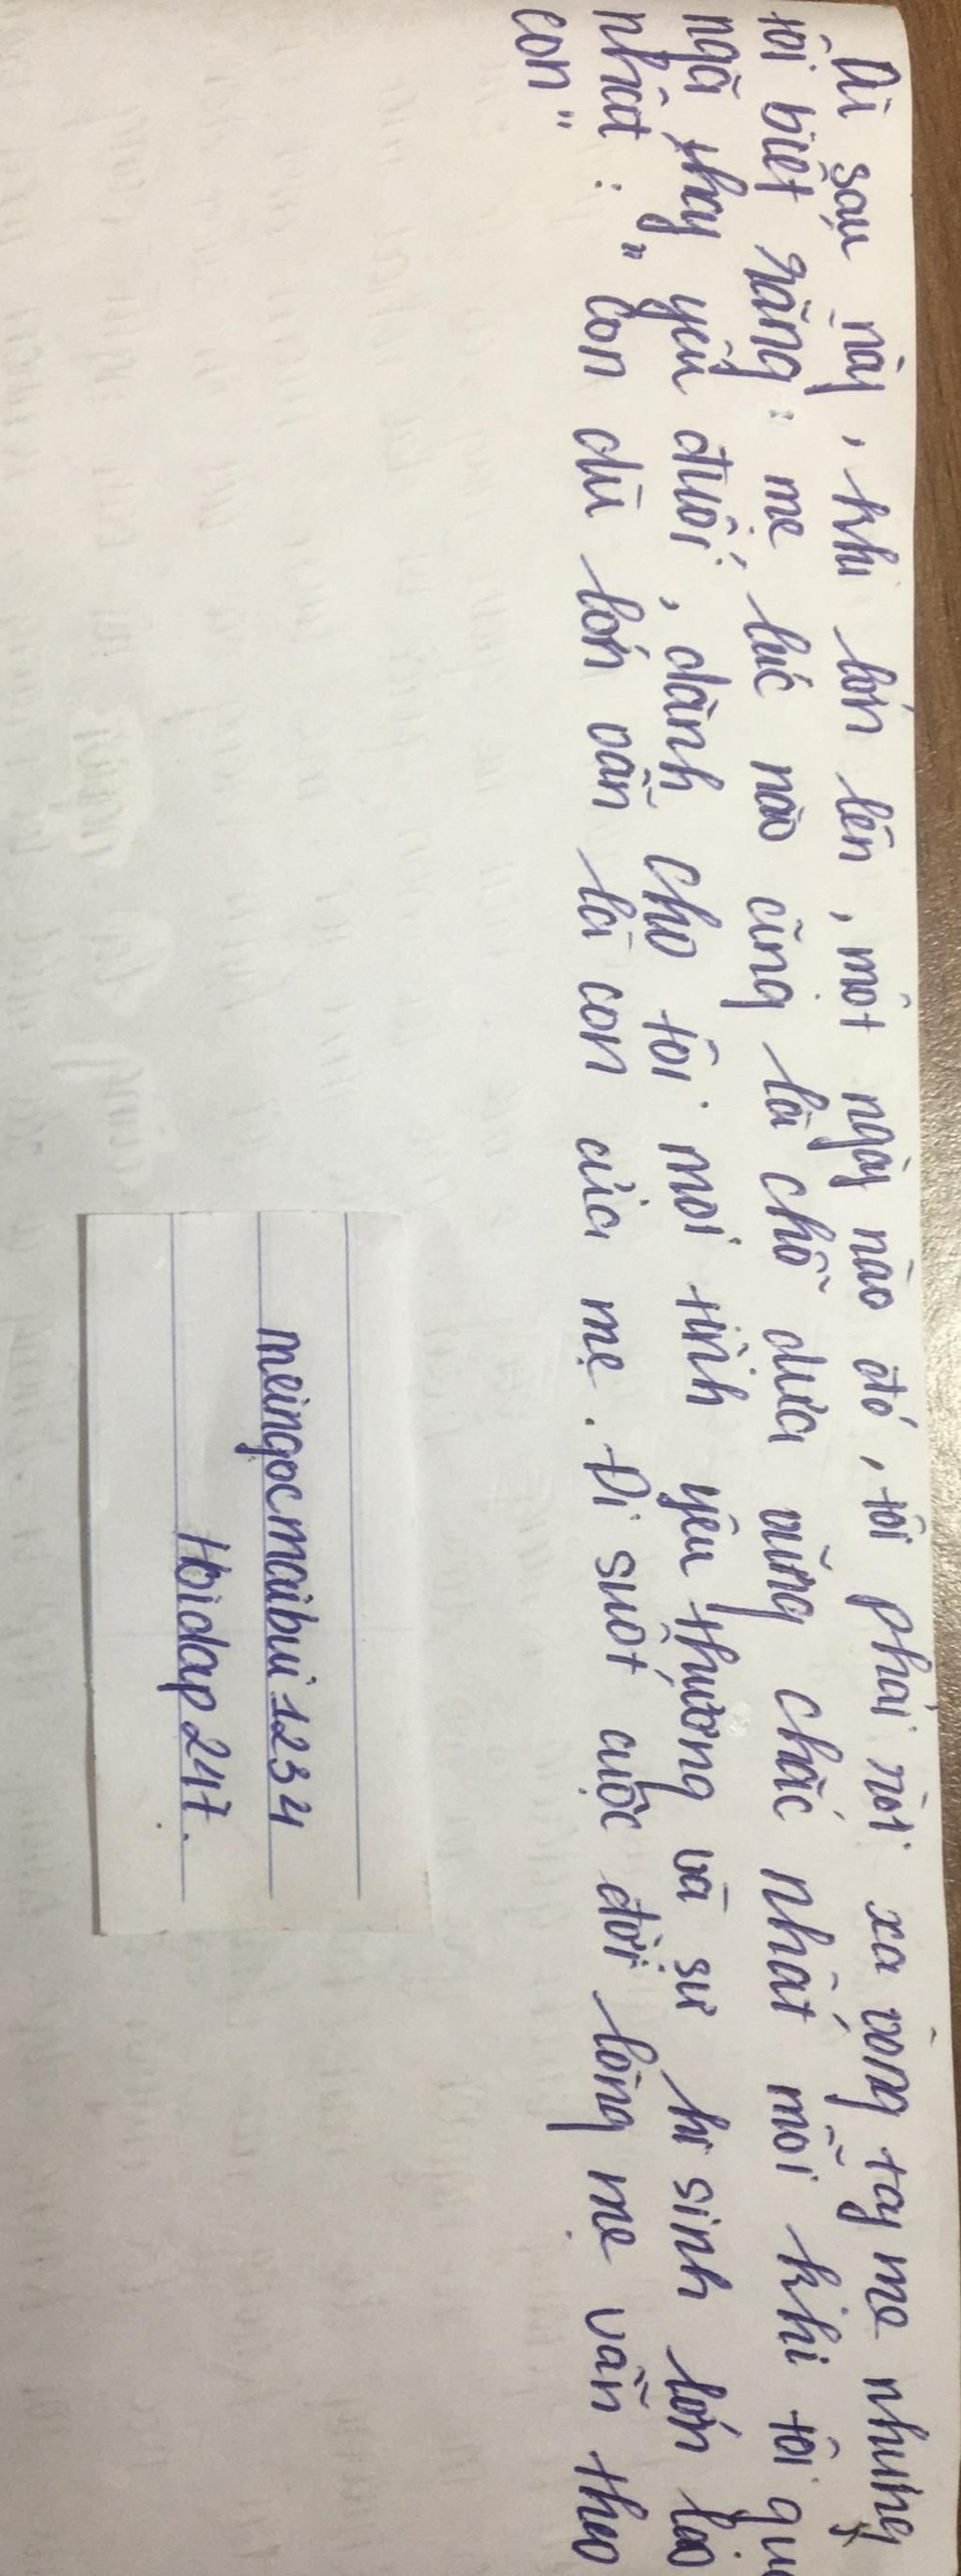 Dù sau này, khi lớn lên, một ngày nào đó, tôi phải rời xa vòng tay mẹ nhưng
tôi biết rằng: mẹ lúc nào cũng là chỗ dựa vững chắc nhất mỗi khi tôi
ngã hay yếu đuối, dành cho tôi mọi tình yêu thương và sự hi sinh lớn lao
nhất: "Con dù lớn vẫn là con của mẹ. Đi suốt cuộc đời lòng mẹ vẫn theo
con"
meingocmaibui1234
Hoidap247.